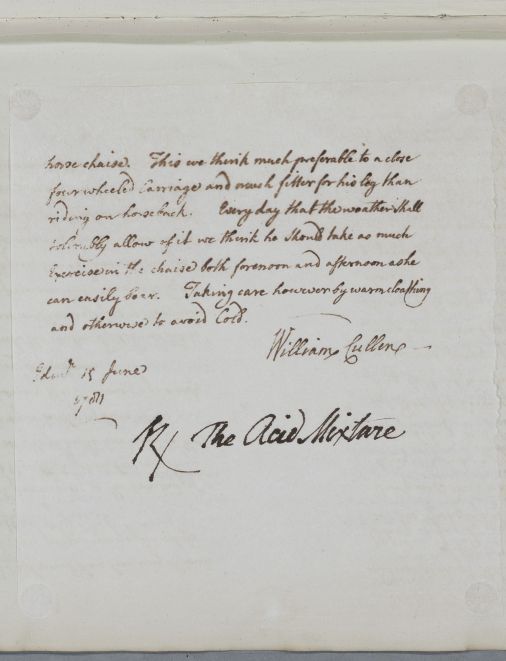 horse chaise. This we think much preferable to a close
four wheeled Carriage and much fitter for his leg than
riding on horseback. Every day that the weather shall
tolerably allow of it we think he should take as much
Exercise in the chaise both forenoon and afternoon as he
can easily bear. Taking care however by warm cloathing
and otherwise to avoid Cold.
William Cullen
Edinr. 15 June
R The Acid Mixture